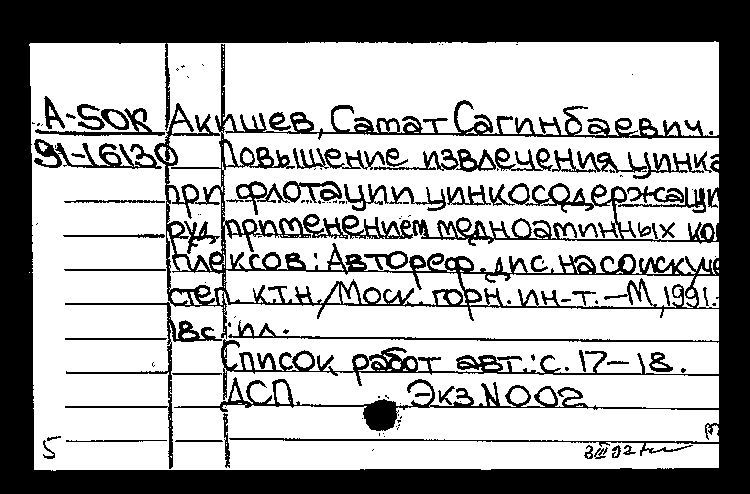 А-50К Акишев, Самат Сагинбаевич.
91-16130 Повышение извлечения цинка
при флотации цинкосодержащи
руд применением медноаминных ко
плексов: Автореф. дис. на соиску
степ. к.т.н./Моск. горн. ин-т.-М, 1991.-
18с.:ил.
Список работ авт.: с. 17-18.
ДСП. Экз.N002
5